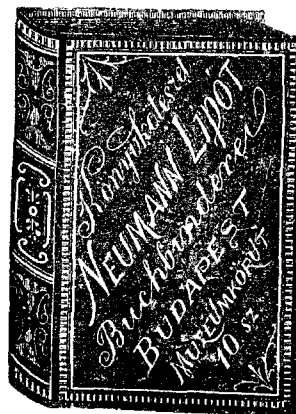 Könyvkötészet
NEUMANN LIPÓT
Buchbinderei
BUDAPEST
MUZEUMKÖRUT
10 SZ